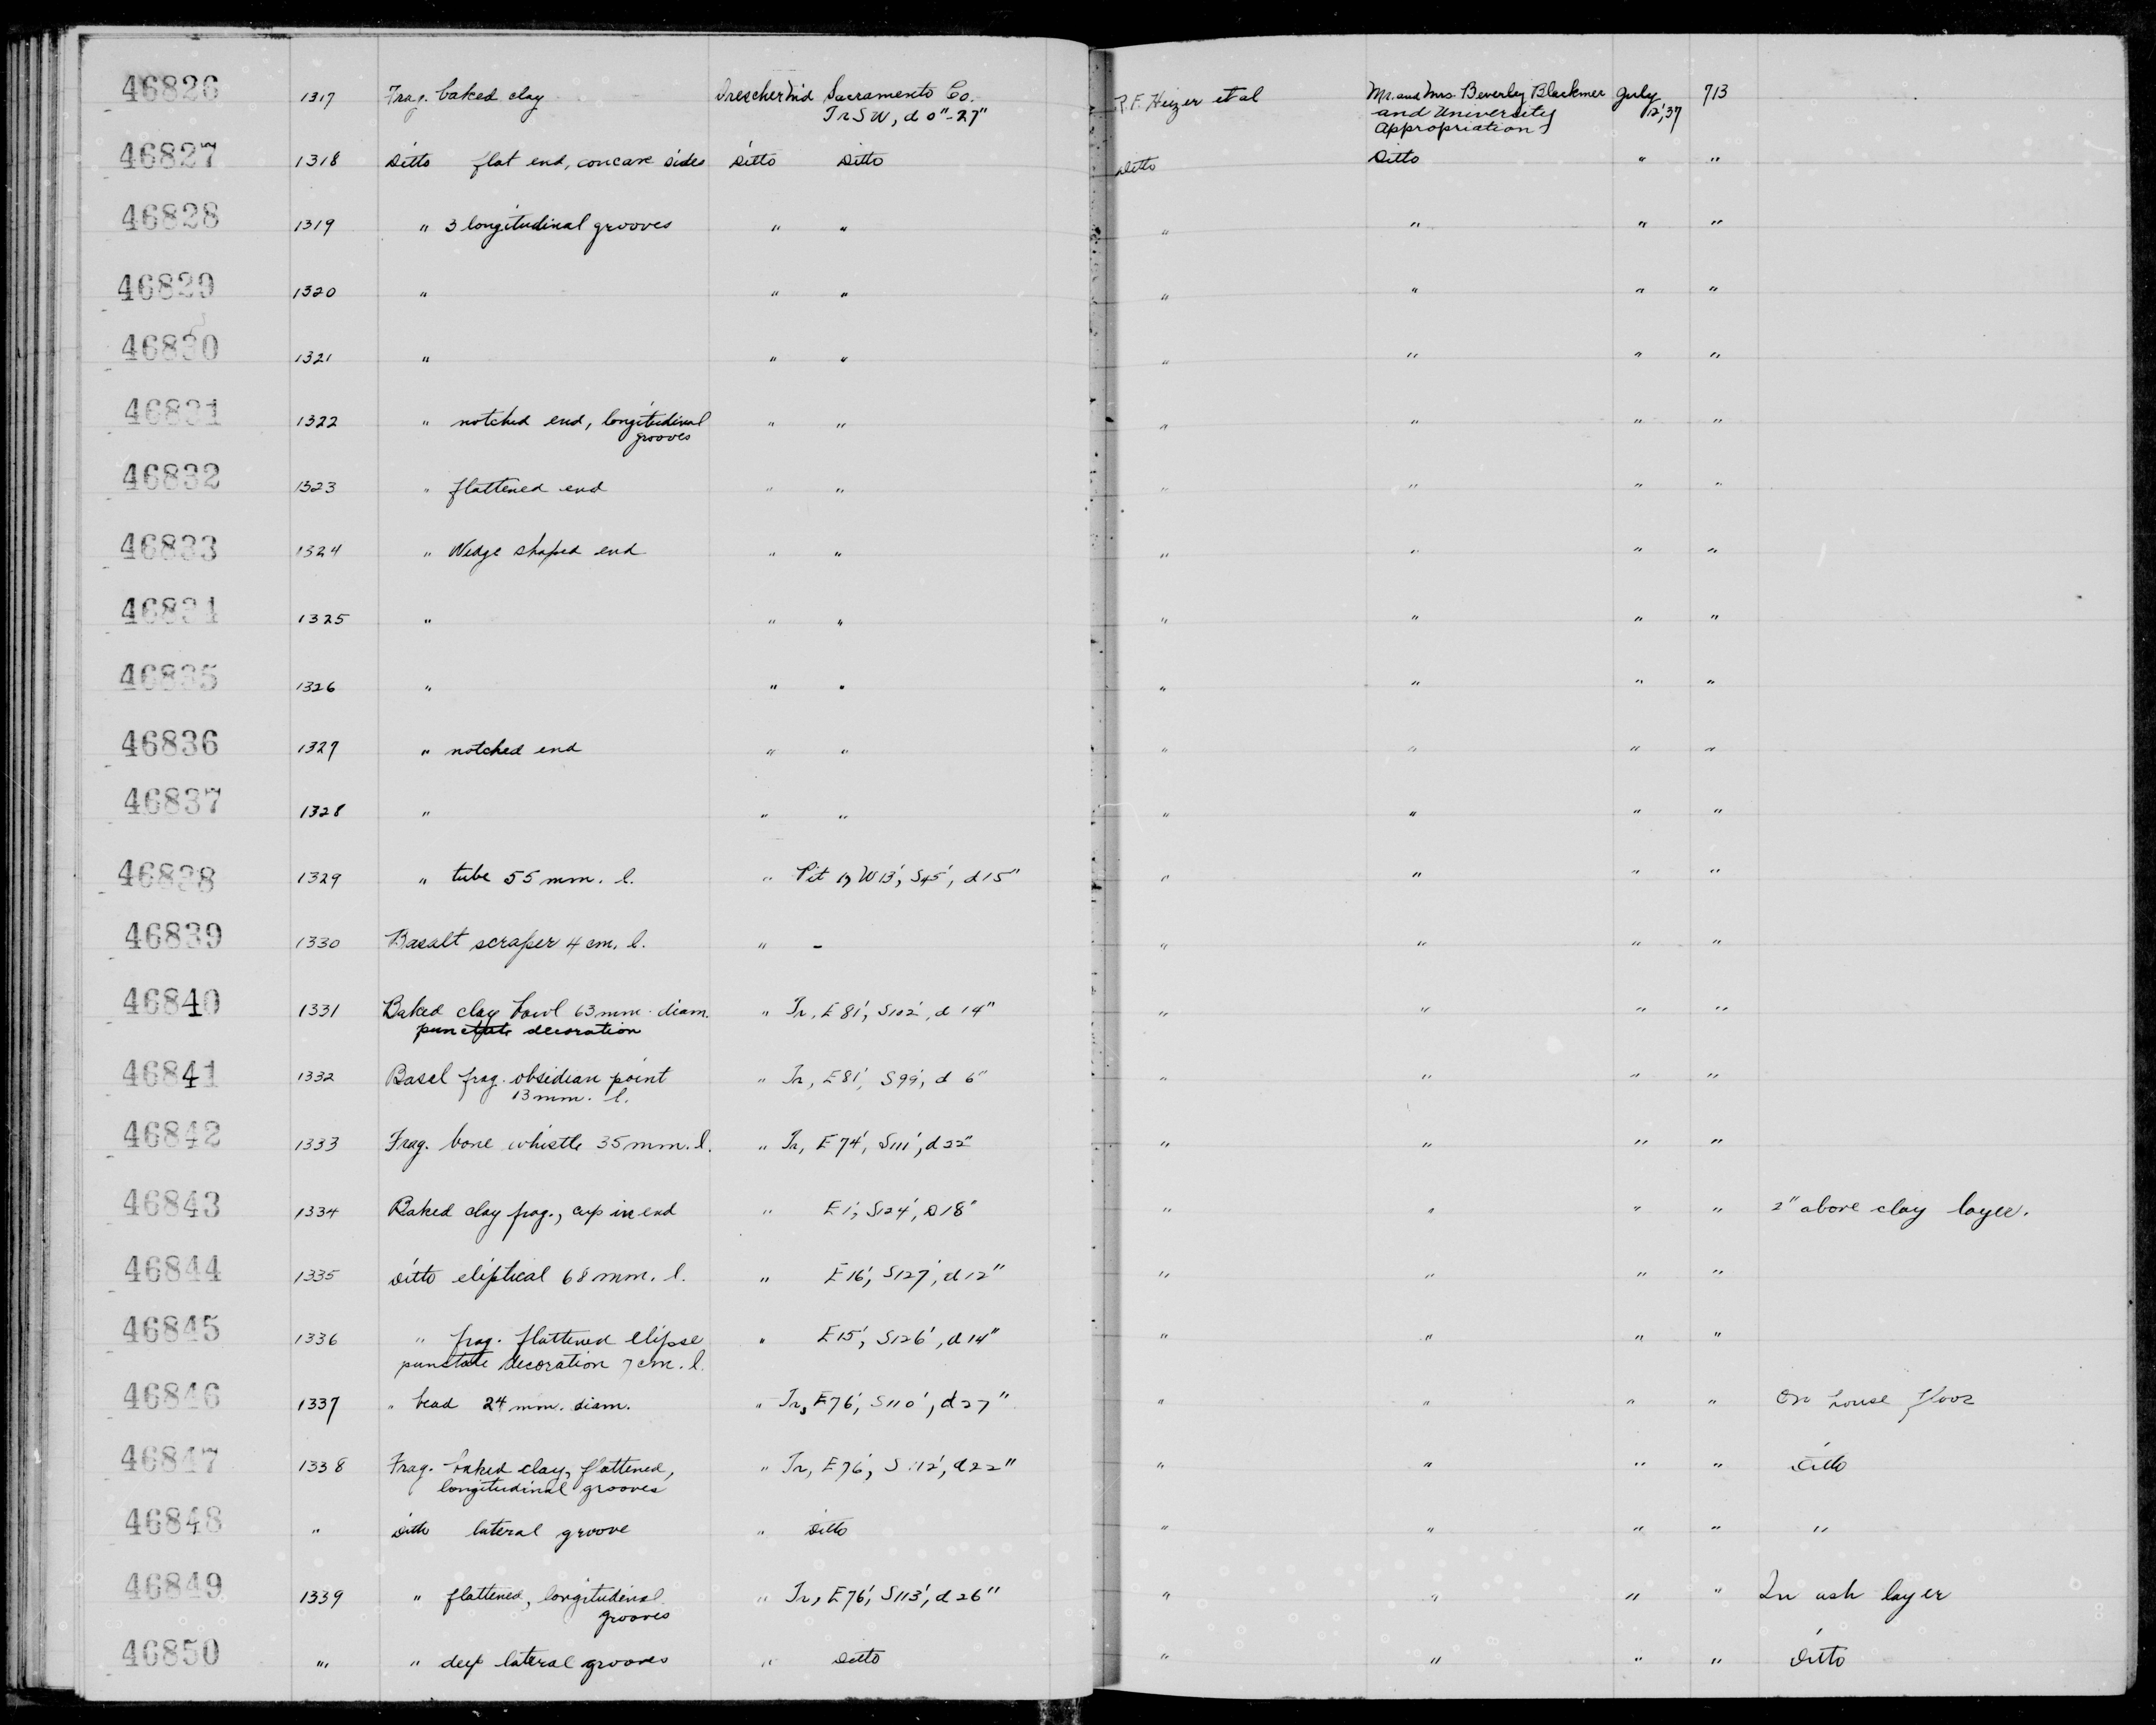 46826 1317 Frag. baked clay Drescher M'd Sacramento Co. R.F. Heizer et al Mr. and Mrs. Beverley Blackmer July 713
Tr SW, d 0"-27" and University 12,'37
Appropriation
46827 1318 Ditto flat end, concave sides Ditto Ditto Ditto Ditto " "
46828 1319 " 3 longitudinal grooves " " " " " "
46829 1320 " " " " " " "
46830 1321 " " " " " " "
46831 1322 " notched end, longitudinal " " " " " "
grooves
46832 1323 " flattened end " " " " " "
46833 1324 " Wedge shaped end " " " " " "
46834 1325 " " " " " " "
46835 1326 " " " " " " "
46836 1327 " notched end " " " " " "
46837 1328 " " " " " " "
46838 1329 " tube 55 mm. l. " Pit W13', S45', d15" " " " "
46839 1330 Basalt scraper 4 cm. l. " - " " " "
46840 1331 Baked clay bowl 63 mm. diam. " Tr, E81', S102', d 14" " " " "
punctate decoration
46841 1332 Basal frag. obsidian point " Tr, E81', S99', d 6" " " " "
13 mm. l.
46842 1333 Frag. bone whistle 35 mm. l. " Tr, E74', S111', d22" " " " "
46843 1334 Baked clay frag., cup in end " E1', S124', D18" " " " " 2" above clay layer.
46844 1335 Ditto eliptical 68 mm. l. " E16', S127', d12" " " " "
46845 1336 " frag. flattened elipse " E15', S126', d14" " " " "
punctate decoration 7 cm. l.
46846 1337 " bead 24 mm. diam. " Tr, E76', S110', d27" " " " " On house floor
46847 1338 Frag. baked clay, flattened, " Tr, E76', S112', d22" " " " " Ditto
longitudinal grooves
46848 " Ditto lateral groove " Ditto " " " " "
46849 1339 " flattened, longitudinal " Tr, E76', S113', d26" " " " " In ash layer
grooves
46850 " " deep lateral grooves " Ditto " " " " Ditto